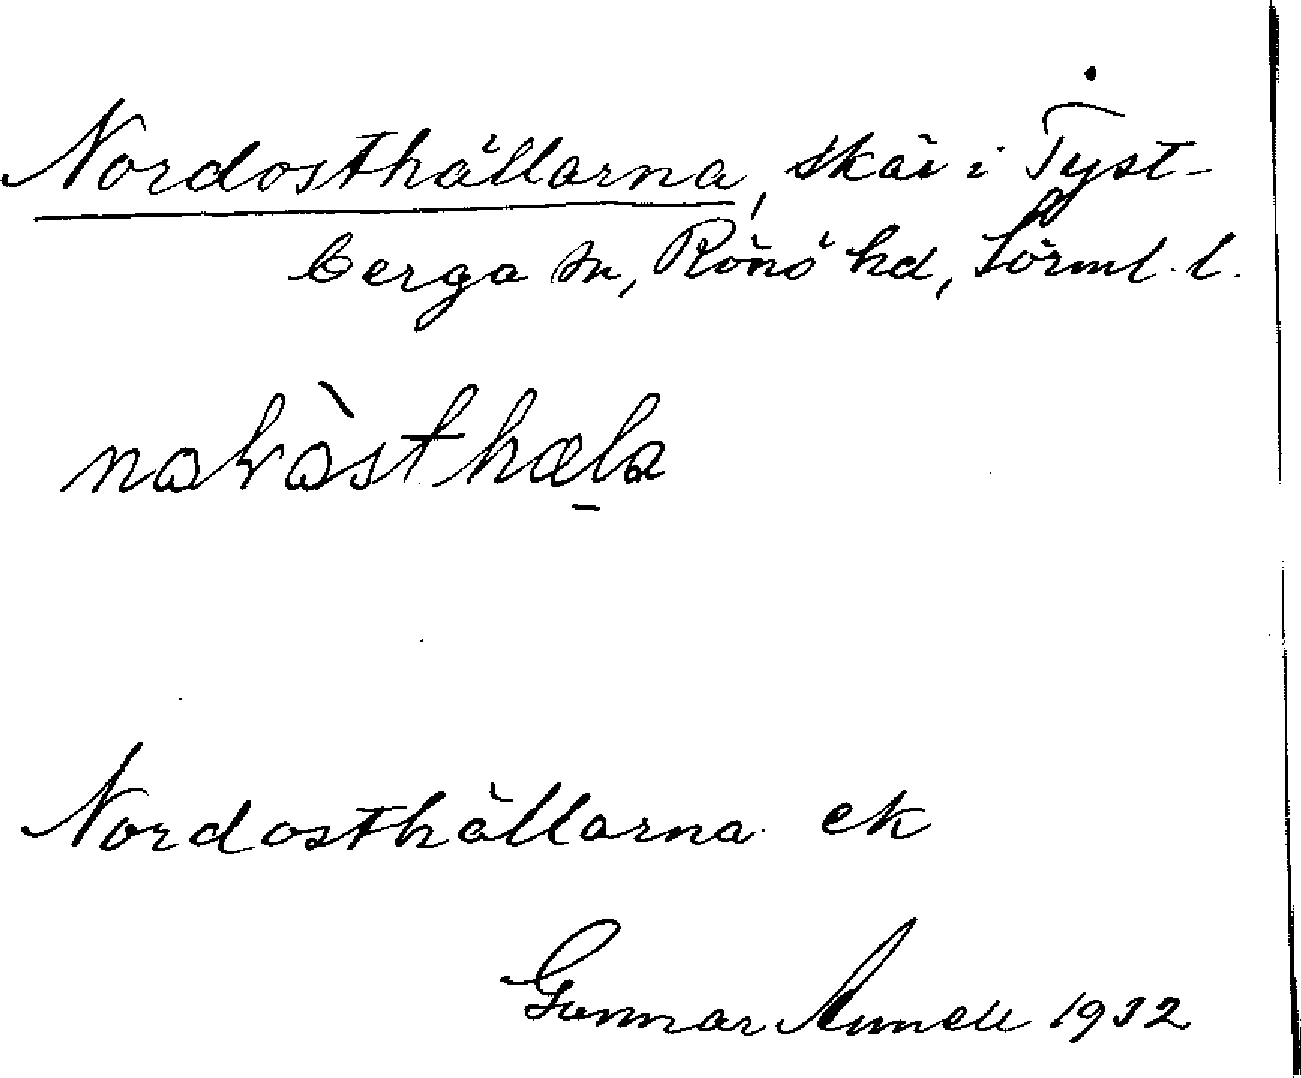 Nordosthällarna, skär i Tyst-
berga sn, Rönö hd, Sörml. l.
Nordosthällarna ek
Gunnar 1932